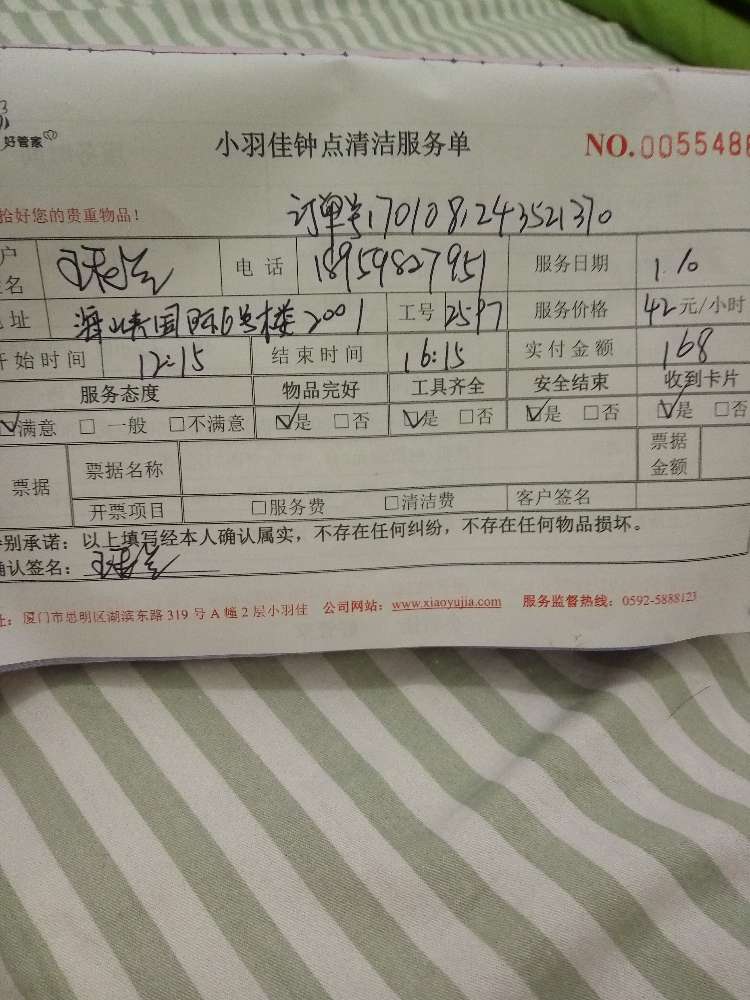 好管家
小羽佳钟点清洁服务单 NO.0055488
拾好您的贵重物品! 订单号1701081243521370
户 名 电话 18959827951 服务日期 1.10
址 海峡国际6号楼2001 工号 2597 服务价格 42元/小时
开始时间 12:15 结束时间 16:15 实付金额 168
服务态度 物品完好 工具齐全 安全结束 收到卡片
☑满意 □一般 □不满意 ☑是 □否 ☑是 □否 ☑是 □否 ☑是 □否
票据 票据名称 票据金额
开票项目 □服务费 □清洁费 客户签名
别承诺:以上填写经本人确认属实,不存在任何纠纷,不存在任何物品损坏。
确认签名:
址:厦门市思明区湖滨东路319号A幢2层小羽佳 公司网站:www.xiaoyujia.com 服务监督热线:0592-5888123